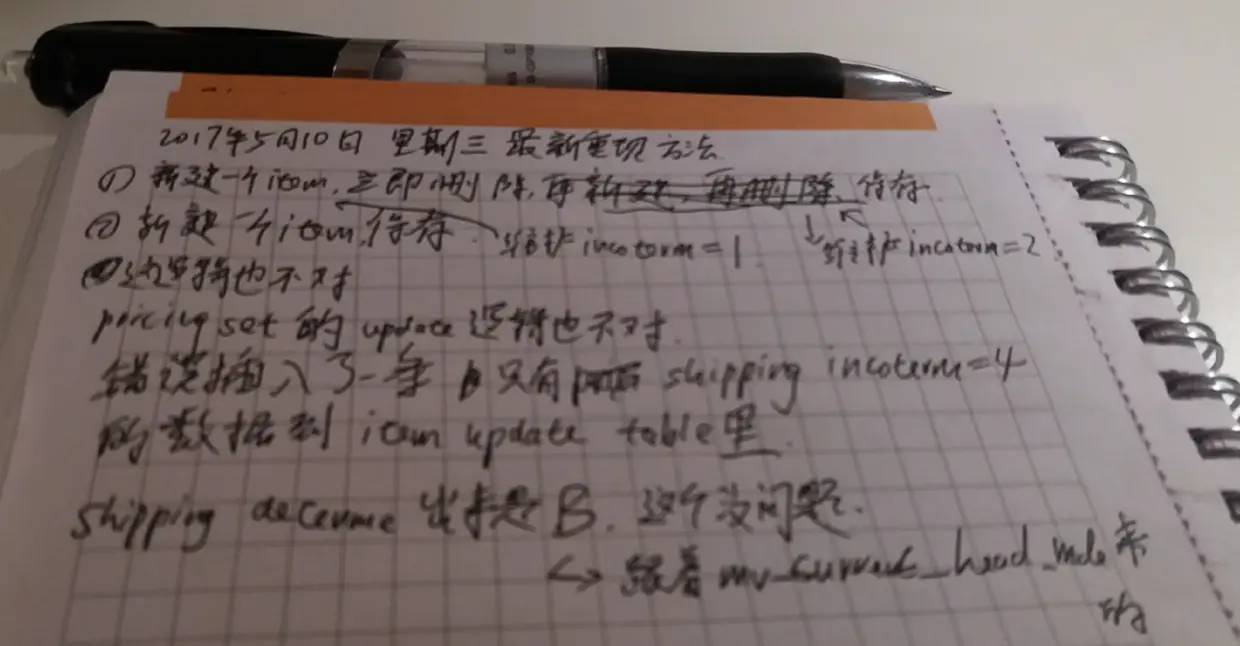 2017年5月10日 星期三 最新重现方法
① 新建一个item, 立即删除, 再新建, 再删除, 保存.
② 新建一个item, 保存. 维护incoterm=1 维护incoterm=2
逻辑也不对
pricing set 的 update 逻辑也不对.
错误插入了一条 只有 shipping incoterm=4
的数据到 item update table里.
shipping 出来是B. 这个没问题.
↳ 跟着 mv_current_head_mode 来
的